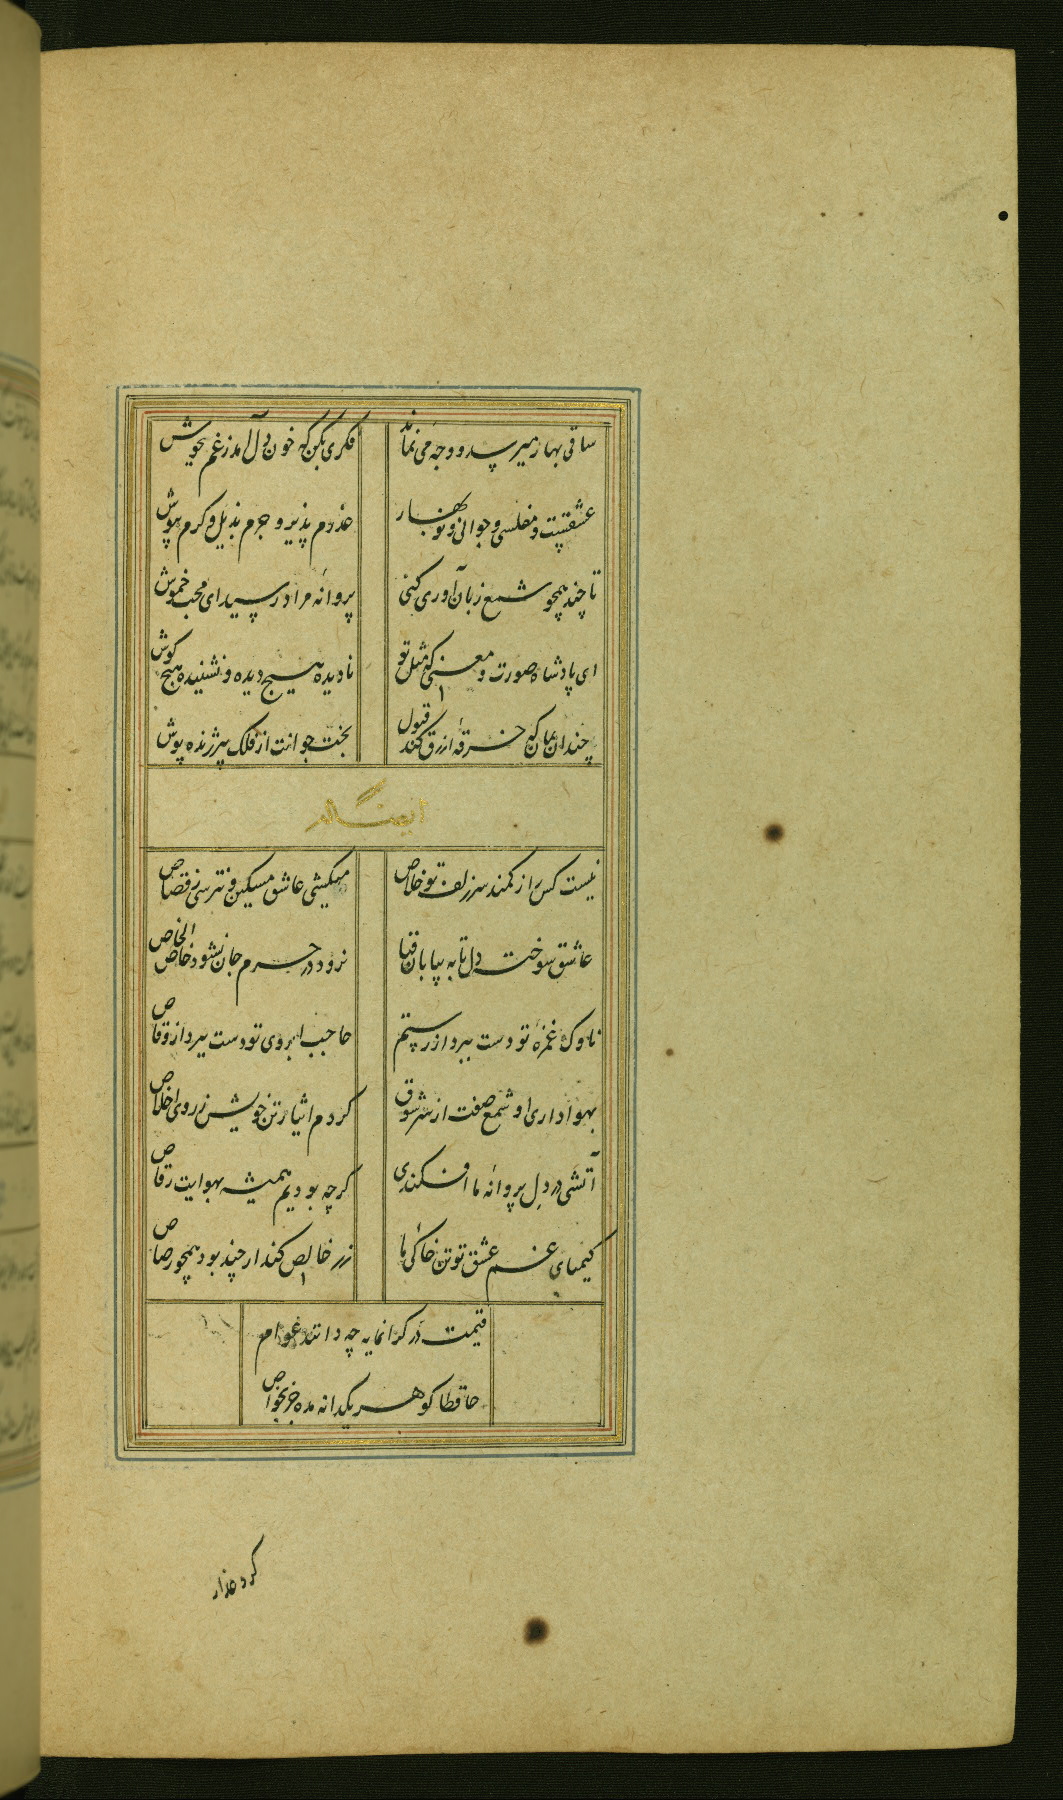 ساقی بهار میرسد و وجه می نماند
فکری بکن که خون دل آمد ز غم بجوش
عشقست و مفلسی و جوانی و نوبهار
عذرم پذیر و جرم بذیل کرم بپوش
تا چند همچو شمع زبان آوری کنی
پروانه مراد رسید ای محب خموش
ای پادشاه صورت و معنی که مثل تو
نادیده هیچ دیده و نشنیده هیچ کوش
چندان بمان که خرقه ازرق کند قبول
بخت جوانت از فلک پیر ژنده پوش
ایضا له
نیست کس را ز کمند سر زلف تو خلاص
میکشی عاشق مسکین و نترسی ز قصاص
عاشق سوخته دل تا به بیابان فنا
نرود در حرم جان نشود خاص الخاص
ناوک غمزه تو دست ببرد از رستم
حاجب ابروی تو دست ببرد از وقاص
بهواداری او شمع صفت از سر شوق
کردم ایثار تن خویش ز روی اخلاص
آتشی در دل پروانه ما افکندی
کرچه بودیم همیشه بهوایت رقاص
کیمیای غم عشق تو تن خاکی ما
زر خالص کند ار چند بود همچو رصاص
قیمت در کرانمایه چه دانند عوام
حافظا کوهر یکدانه مده جز بخواص
کرد عذار